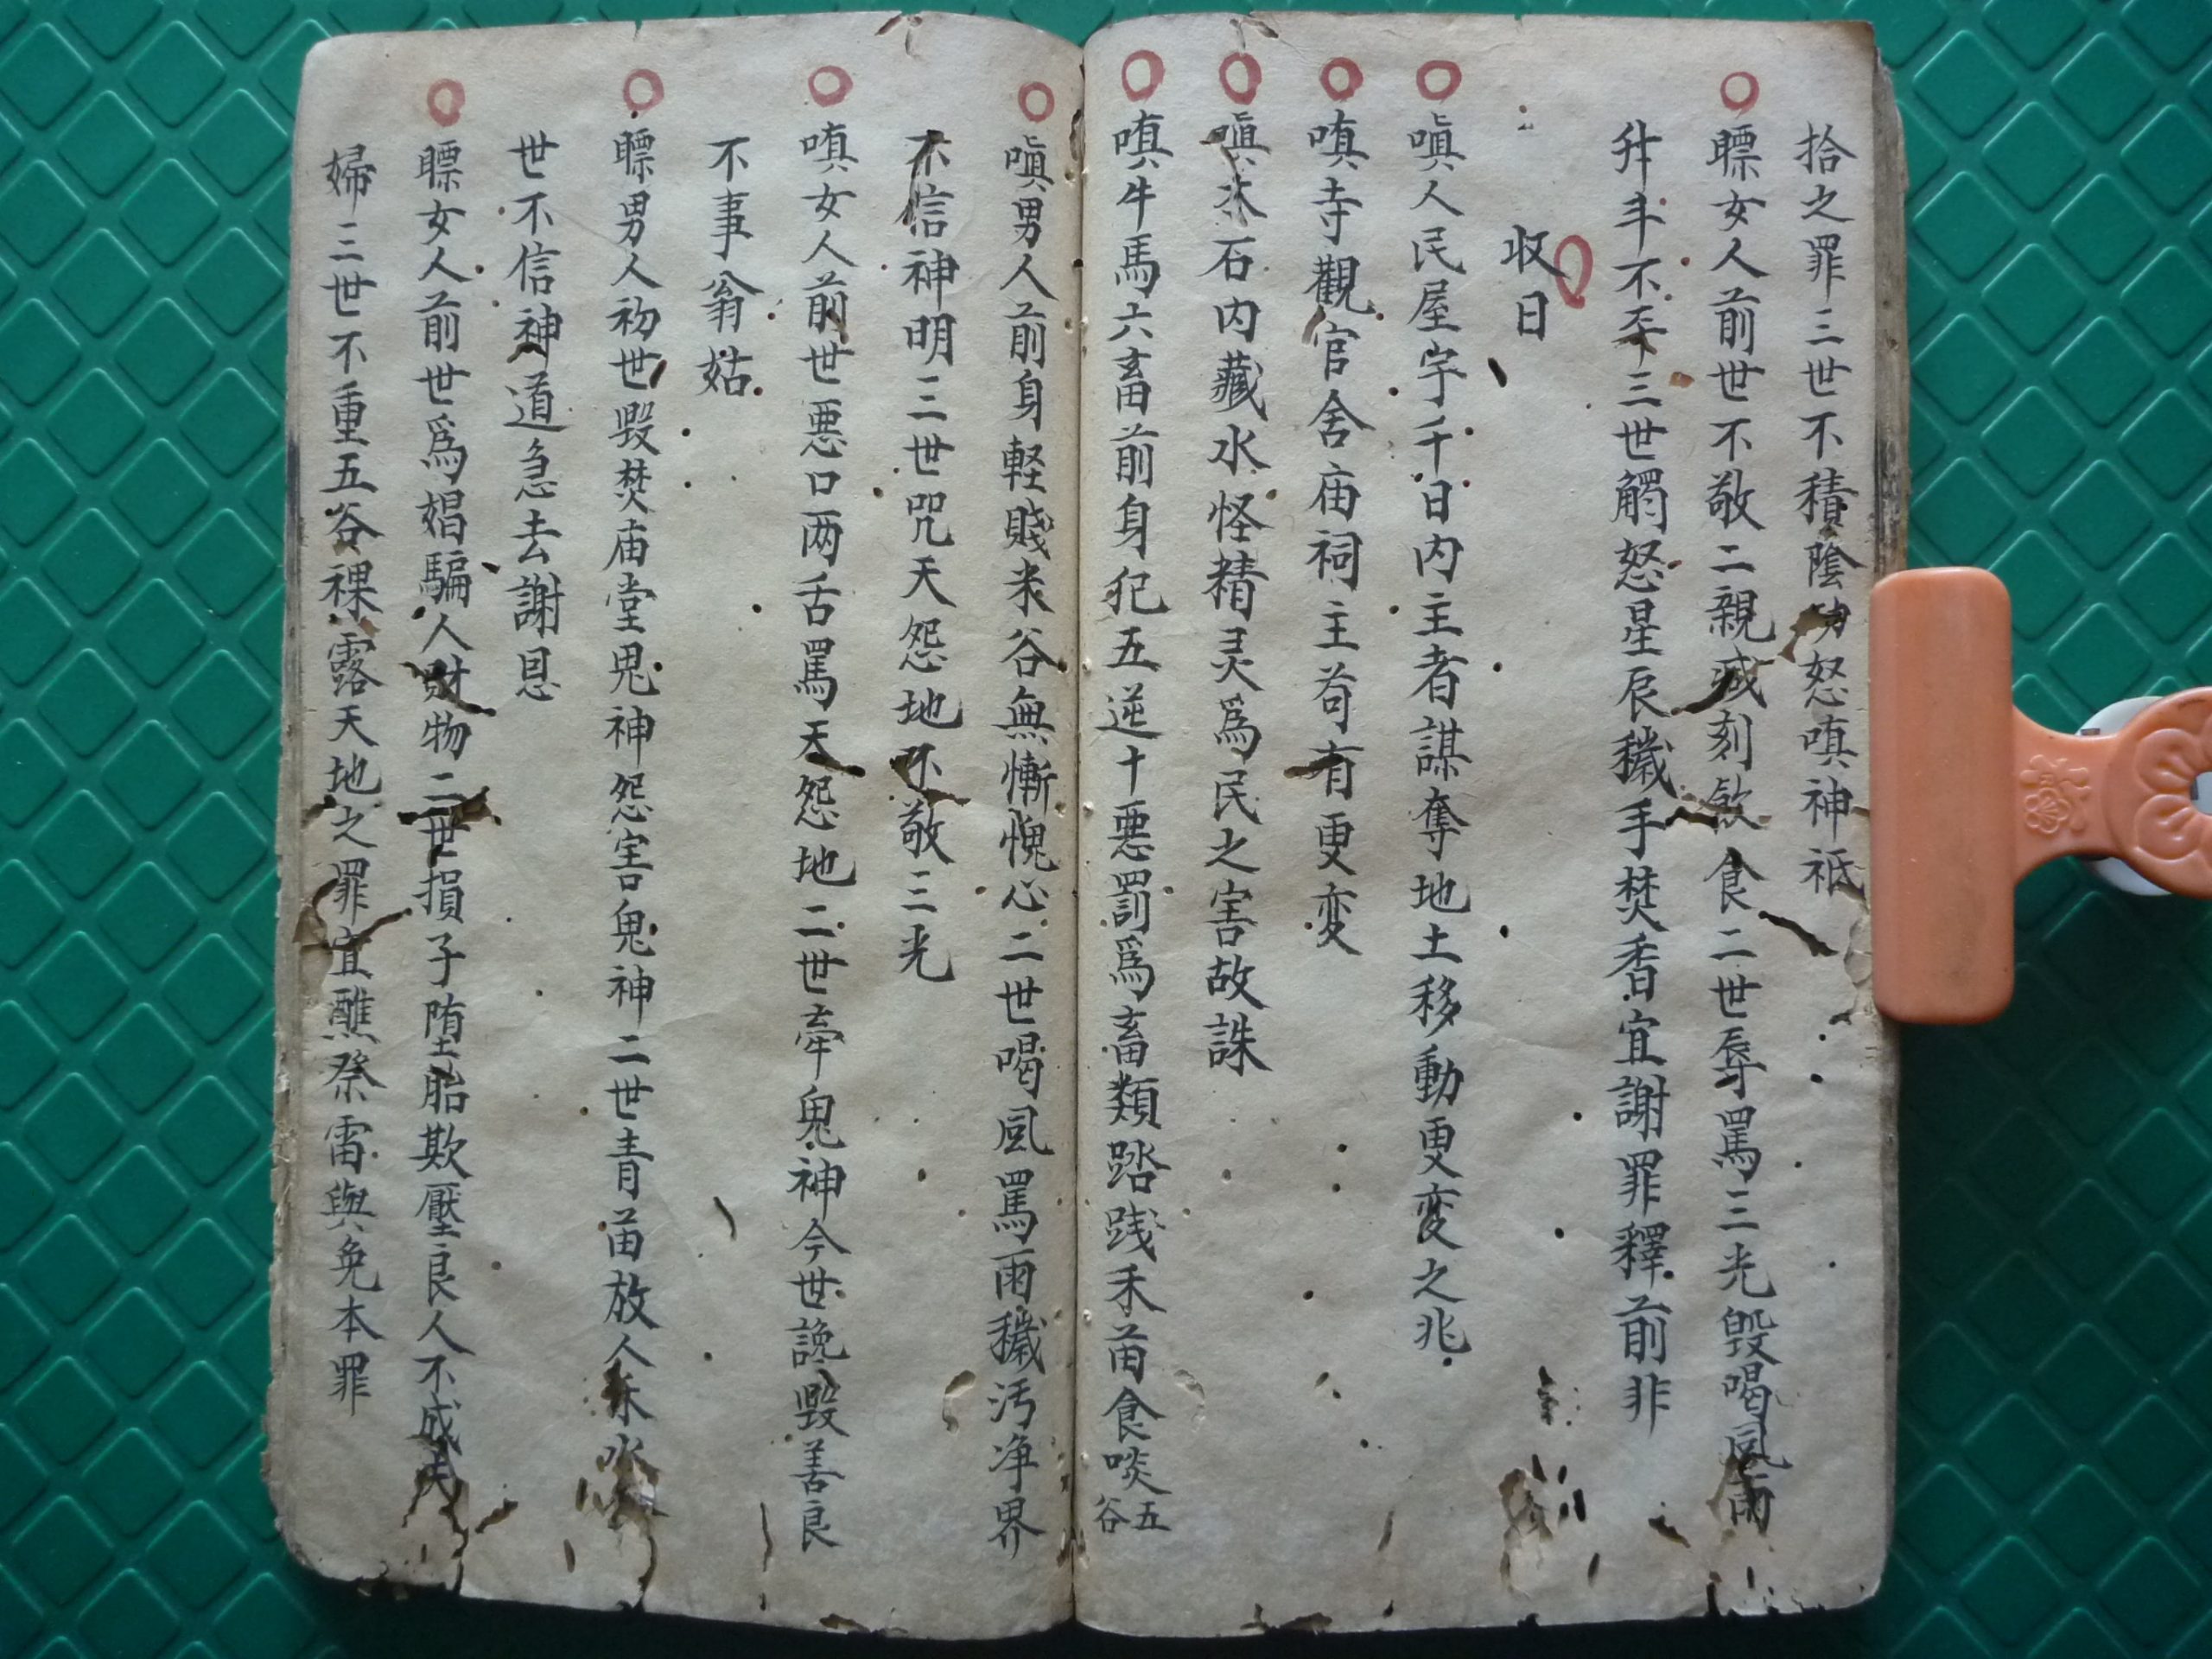 拾之罪三世不積陰功怒嗔神祇
瞟女人前世不敬二親減刻飲食二世辱罵三光毀喝風雨
升斗不平三世觸怒星辰穢手焚香宜謝罪釋前非
収日
嗔人民屋宇千日内主者謀奪地土移動更変之兆
嗔寺觀官舍庙祠主苟有更変
嗔木石内藏水怪精灵爲民之害故誅
嗔牛馬六畜前身犯五逆十惡罰爲畜類踏践禾苗食啖五谷
嗔男人前身輕賤米谷無慚愧心二世喝風罵雨穢汚净界
不信神明三世咒天怨地不敬三光
嗔女人前世悪口两舌罵天怨地二世牽鬼神今世讒毀善良
不事翁姑
瞟男人初世毀焚庙堂鬼神怨害鬼神二世青苗放人禾水
世不信神道急去謝恩
瞟女人前世爲娼騙人財物二世損子堕胎欺壓良人不成夫
婦三世不重五谷裸露天地之罪宜醮祭雷與免本罪